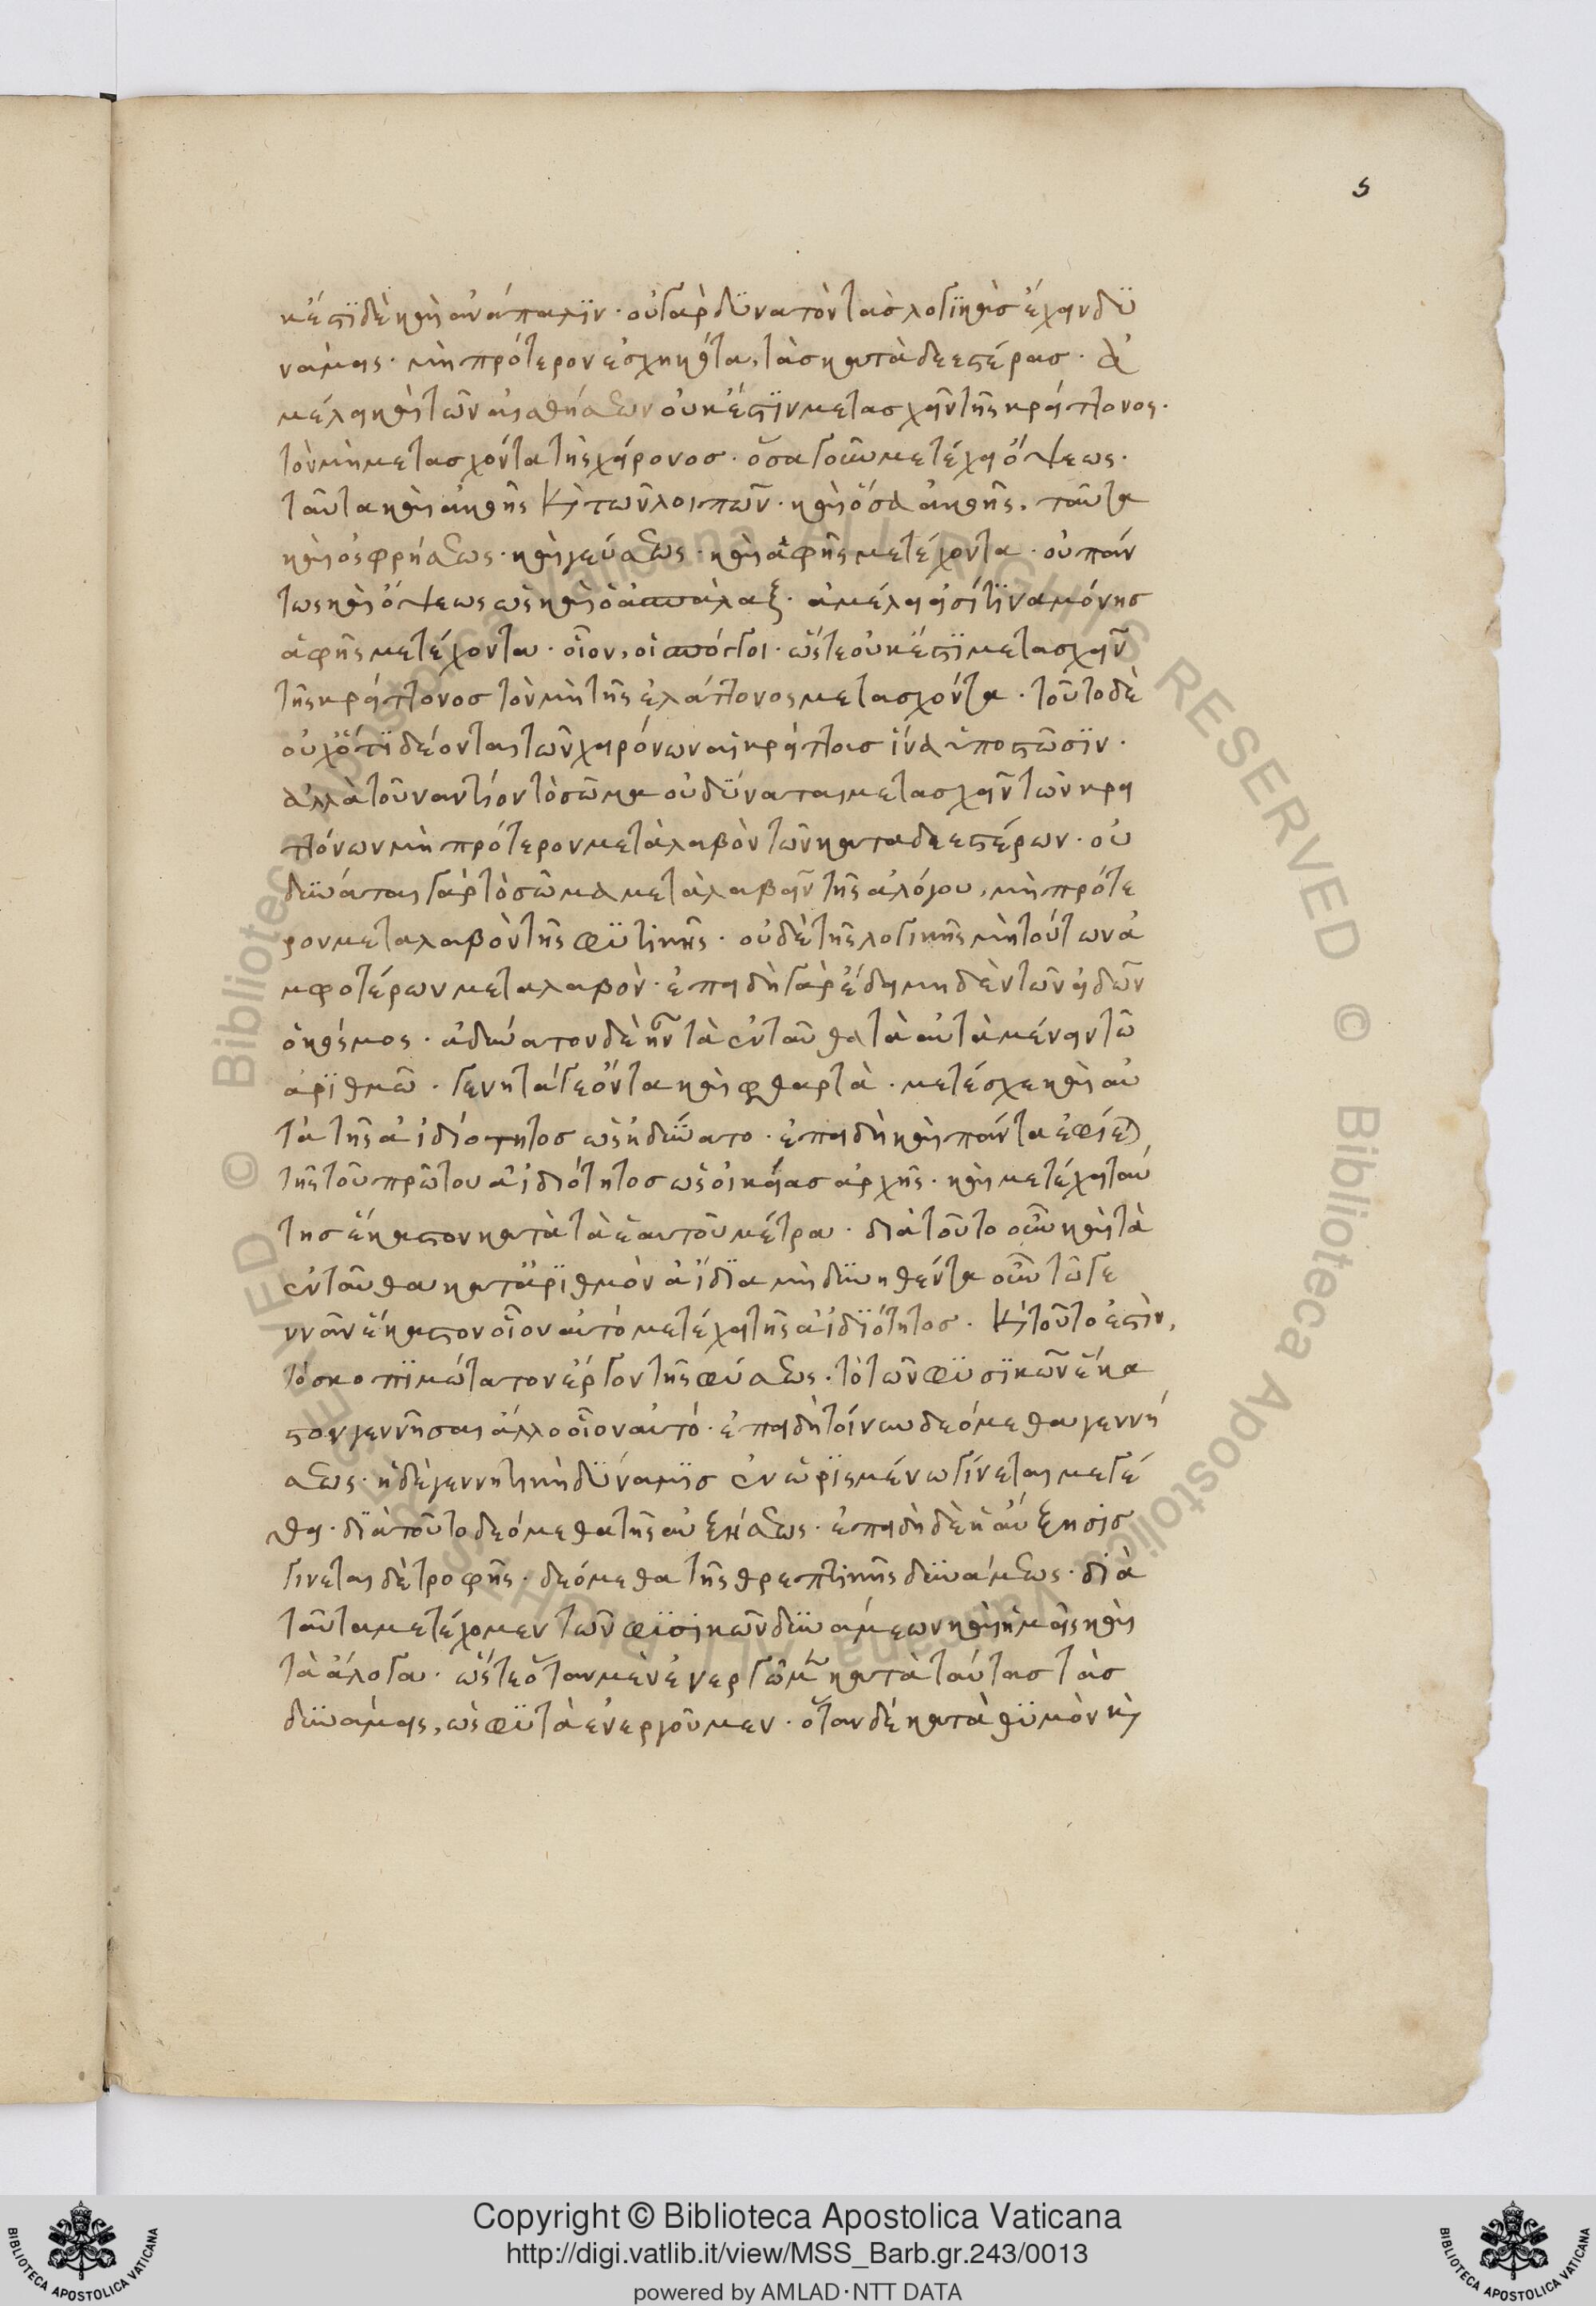 5
κέστι δὲ καὶ ἀνάπαλιν· οὐ γὰρ δυνατὸν τὰς λογικὰς ἔχειν δυ
νάμεις· μὴ πρότερον ἐσχηκότα, τὰς καταδεεστέρας· ἀ
μέλει καὶ τῶν αἰσθήσεων οὐκ ἔστιν μετασχεῖν τῆς κρείττονος·
τὸν μὴ μετασχόντα τῆς χείρονος· ὅσα γοῦν μετέχει ὄψεως·
ταῦτα καὶ ἀκοῆς καὶ τῶν λοιπῶν· καὶ ὅσα ἀκοῆς, ταῦτα
καὶ ὀσφρήσεως· καὶ γεύσεως· καὶ ἁφῆς μετέχοντα· οὐ πάν
τως καὶ ὄψεως ὡς καὶ ὁ ἀσπάλαξ· ἀμέλει εἰσί τινα μόνης
ἁφῆς μετέχοντα· οἷον, οἱ σπόγγοι· ὥστε οὐκ ἔστι μετασχεῖν
τῆς κρείττονος τὸν μὴ τῆς ἐλάττονος μετασχόντα· τοῦτο δὲ
οὐχ ὅτι δέονται τῶν χειρόνων αἱ κρείττους ἵνα ὑποστῶσιν·
ἀλλὰ τοὐναντίον τὸ σῶμα οὐ δύναται μετασχεῖν τῶν κρει
ττόνων μὴ πρότερον μεταλαβὸν τῶν καταδεεστέρων· οὐ
δύναται γὰρ τὸ σῶμα μεταλαβεῖν τῆς ἀλόγου, μὴ πρότε
ρον μεταλαβὸν τῆς φυτικῆς· οὐδὲ τῆς λογικῆς μὴ τούτων ἀ
μφοτέρων μεταλαβόν· ἐπειδὴ γὰρ ἔδει μηδὲν τῶν εἰδῶν
ὁ κόσμος· ἀδύνατον δὲ ἦν τὰ ἐνταῦθα τὰ αὐτὰ μένειν τῷ
ἀριθμῷ· γενητά γε ὄντα καὶ φθαρτὰ· μετέσχε καὶ αὐ
τὰ τῆς ἀϊδιότητος ὡς ἠδύνατο· ἐπειδὴ καὶ πάντα ἐφίεται
τῆς τοῦ πρώτου ἀϊδιότητος ὡς οἰκείας ἀρχῆς· καὶ μετέχει ταύ
της ἕκαστον κατὰ τὰ ἑαυτοῦ μέτρα· διὰ τοῦτο οὖν καὶ τὰ
ἐνταῦθα κατ' ἀριθμὸν ἀΐδια μὴ δυνηθέντα οὖν τῷ γε
ννᾶν ἕκαστον οἷον αὐτό μετέχει τῆς ἀϊδιότητος· καὶ τοῦτο ἐστὶν,
τὸ σκοπιμώτατον ἔργον τῆς φύσεως· τὸ τῶν φυσικῶν ἕκα
στον γεννῆσαι ἄλλο οἷον αὐτό· ἐπειδὴ τοίνυν δεόμεθα γεννή
σεως· ἡ δὲ γεννητικὴ δύναμις ἐν ὡρισμένῳ γίνεται μεγέ
θει· διὰ τοῦτο δεόμεθα τῆς αὐξήσεως· ἐπειδὴ δὲ ἡ αὔξησις
γίνεται δὲ τροφῆς· δεόμεθα τῆς θρεπτικῆς δυνάμεως· διὰ
ταῦτα μετέχομεν τῶν φυσικῶν δυνάμεων καὶ ἡμεῖς καὶ
τὰ ἄλογα· ὥστε ὅταν μὲν ἐνεργῶμεν κατὰ ταύτας τὰς
δυνάμεις, ὡς φυτὰ ἐνεργοῦμεν· ὅταν δέ κατὰ θυμὸν καὶ
Copyright © Biblioteca Apostolica Vaticana
http://digi.vatlib.it/view/MSS_Barb.gr.243/0013
powered by AMLAD·NTT DATA